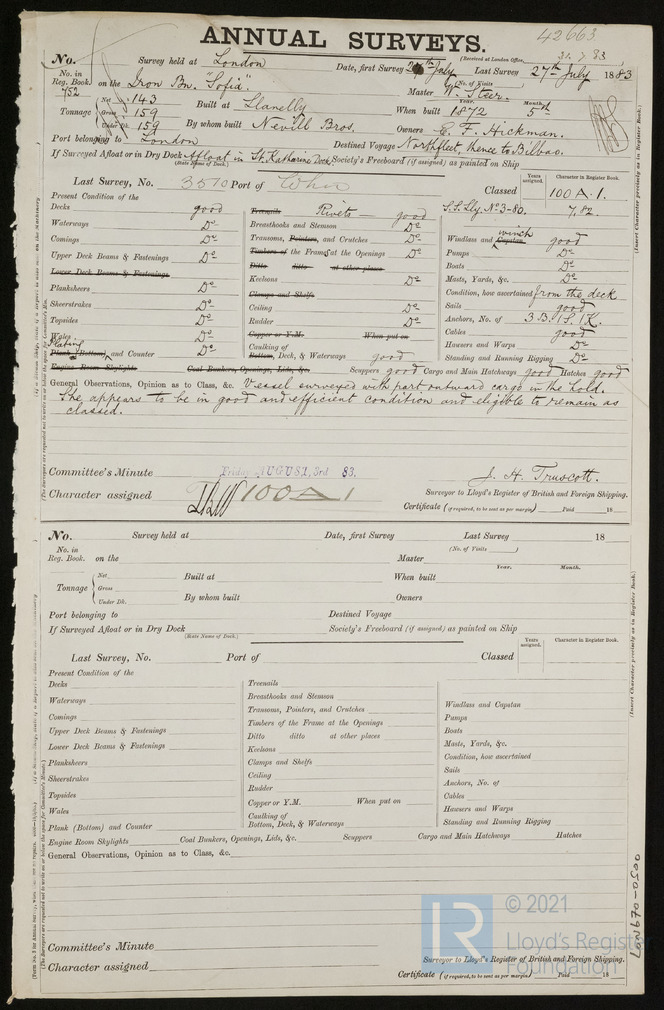 ANNUAL SURVEYS.
42663
(Received at London Office, 31.7.83)
No. Survey held at London Date, first Survey July Last Survey 27th July 1883
No. in Reg. Book. 752 on the Iron Bn. "Sofia". (No. of Visits) Master W. Steer.
Tonnage Net 143 Gross 159 Under Dk. 159
Built at Llanelly When built Year. 1872 Month. 5th
By whom built Nevill Bros. Owners C. F. Hickman.
Port belonging to London Destined Voyage Northfleet, thence to Bilbao.
If Surveyed Afloat or in Dry Dock Afloat in St. Katharine Dock Society's Freeboard (if assigned) as painted on Ship
(State Name of Dock.)
Last Survey, No. 3510 Port of Classed Years assigned. Character in Register Book. 100 A. 1.
Present Condition of the S.S. Lly. No. 3-80. 7,82.
Decks good
Waterways Do
Comings Do
Upper Deck Beams & Fastenings Do
Lower Deck Beams & Fastenings
Planksheers Do
Sheerstrakes Do
Topsides Do
Wales Do
Plating
Plank (Bottom) and Counter Do
Engine Room Skylights Coal Bunkers, Openings, Lids, &c. Scuppers good Cargo and Main Hatchways good Hatches good
Treenails Rivets good
Breasthooks and Stemson Do
Transoms, Pointers, and Crutches Do
Timbers of the Frame at the Openings Do
Ditto ditto at other places
Keelsons Do
Clamps and Shelfs
Ceiling Do
Rudder Do
Copper or Y.M. When put on
Caulking of
Bottom, Deck, & Waterways good
winch
Windlass and Capstan good
Pumps Do
Boats Do
Masts, Yards, &c. Do
Condition, how ascertained from the deck
Sails good
Anchors, No. of 3 B. 1 S. 1 K.
Cables good
Hawsers and Warps Do
Standing and Running Rigging Do
General Observations, Opinion as to Class, &c. Vessel surveyed with part outward cargo in the hold.
She appears to be in good and efficient condition and eligible to remain as
classed.
Committee's Minute Friday AUGUST, 3rd 83.
J. H. Truscott.
Character assigned 100 A 1
Surveyor to Lloyd's Register of British and Foreign Shipping.
Certificate (if required, to be sent as per margin) Paid 18
No. Survey held at Date, first Survey Last Survey 18
No. in Reg. Book. on the (No. of Visits) Master
Tonnage Net Gross Under Dk.
Built at When built Year. Month.
By whom built Owners
Port belonging to Destined Voyage
If Surveyed Afloat or in Dry Dock Society's Freeboard (if assigned) as painted on Ship
(State Name of Dock.)
Last Survey, No. Port of Classed Years assigned. Character in Register Book.
Present Condition of the
Decks
Waterways
Comings
Upper Deck Beams & Fastenings
Lower Deck Beams & Fastenings
Planksheers
Sheerstrakes
Topsides
Wales
Plank (Bottom) and Counter
Engine Room Skylights Coal Bunkers, Openings, Lids, &c. Scuppers Cargo and Main Hatchways Hatches
Treenails
Breasthooks and Stemson
Transoms, Pointers, and Crutches
Timbers of the Frame at the Openings
Ditto ditto at other places
Keelsons
Clamps and Shelfs
Ceiling
Rudder
Copper or Y.M. When put on
Caulking of
Bottom, Deck, & Waterways
Windlass and Capstan
Pumps
Boats
Masts, Yards, &c.
Condition, how ascertained
Sails
Anchors, No. of
Cables
Hawsers and Warps
Standing and Running Rigging
General Observations, Opinion as to Class, &c.
Committee's Minute
Character assigned
Surveyor to Lloyd's Register of British and Foreign Shipping.
Certificate (if required, to be sent as per margin) Paid 18
(Insert Character precisely as in Register Book.)
(Insert Character precisely as in Register Book.)
LON670-0500
LR
© 2021
Lloyd's Register
Foundation